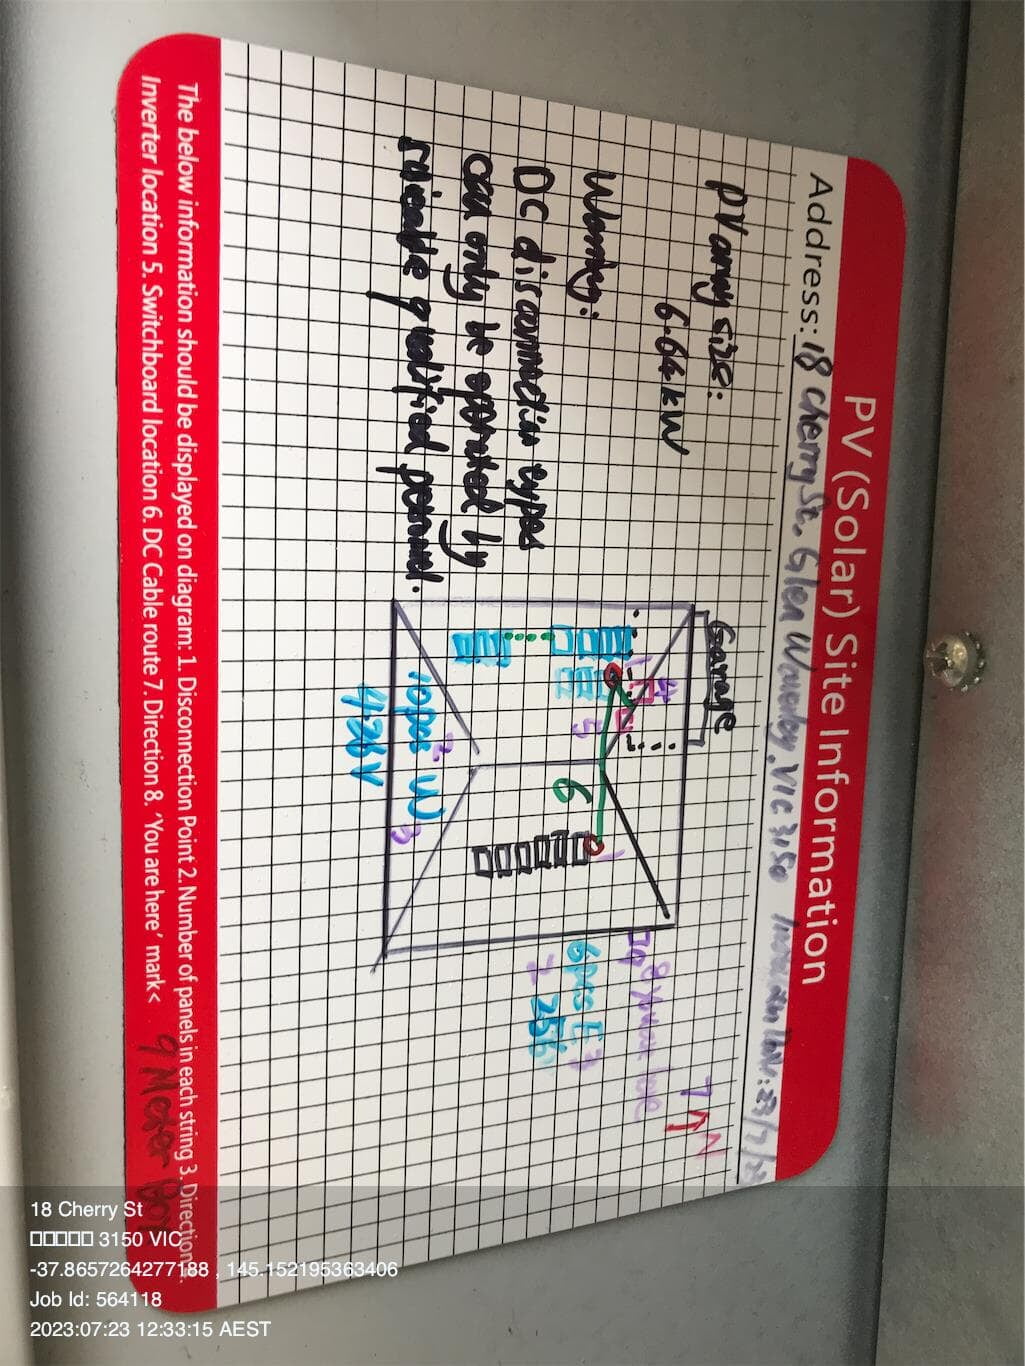 PV (Solar) Site Information
Address: 18 Cherry St. Glen Waverley. VIC 3150
PV array size:
6.64kW
DC disconnection types
can only be operated by
Garage
4
1
5
6
1
10pcs W
2
3
426V
6pcs E
2
3
7
N
The below information should be displayed on diagram: 1. Disconnection Point 2. Number of panels in each string 3. Direction
Inverter location 5. Switchboard location 6. DC Cable route 7. Direction 8. 'You are here' mark<
9 Meter Box
18 Cherry St
□□□□□ 3150 VIC
-37.8657264277188 , 145.152195363406
Job Id: 564118
2023:07:23 12:33:15 AEST